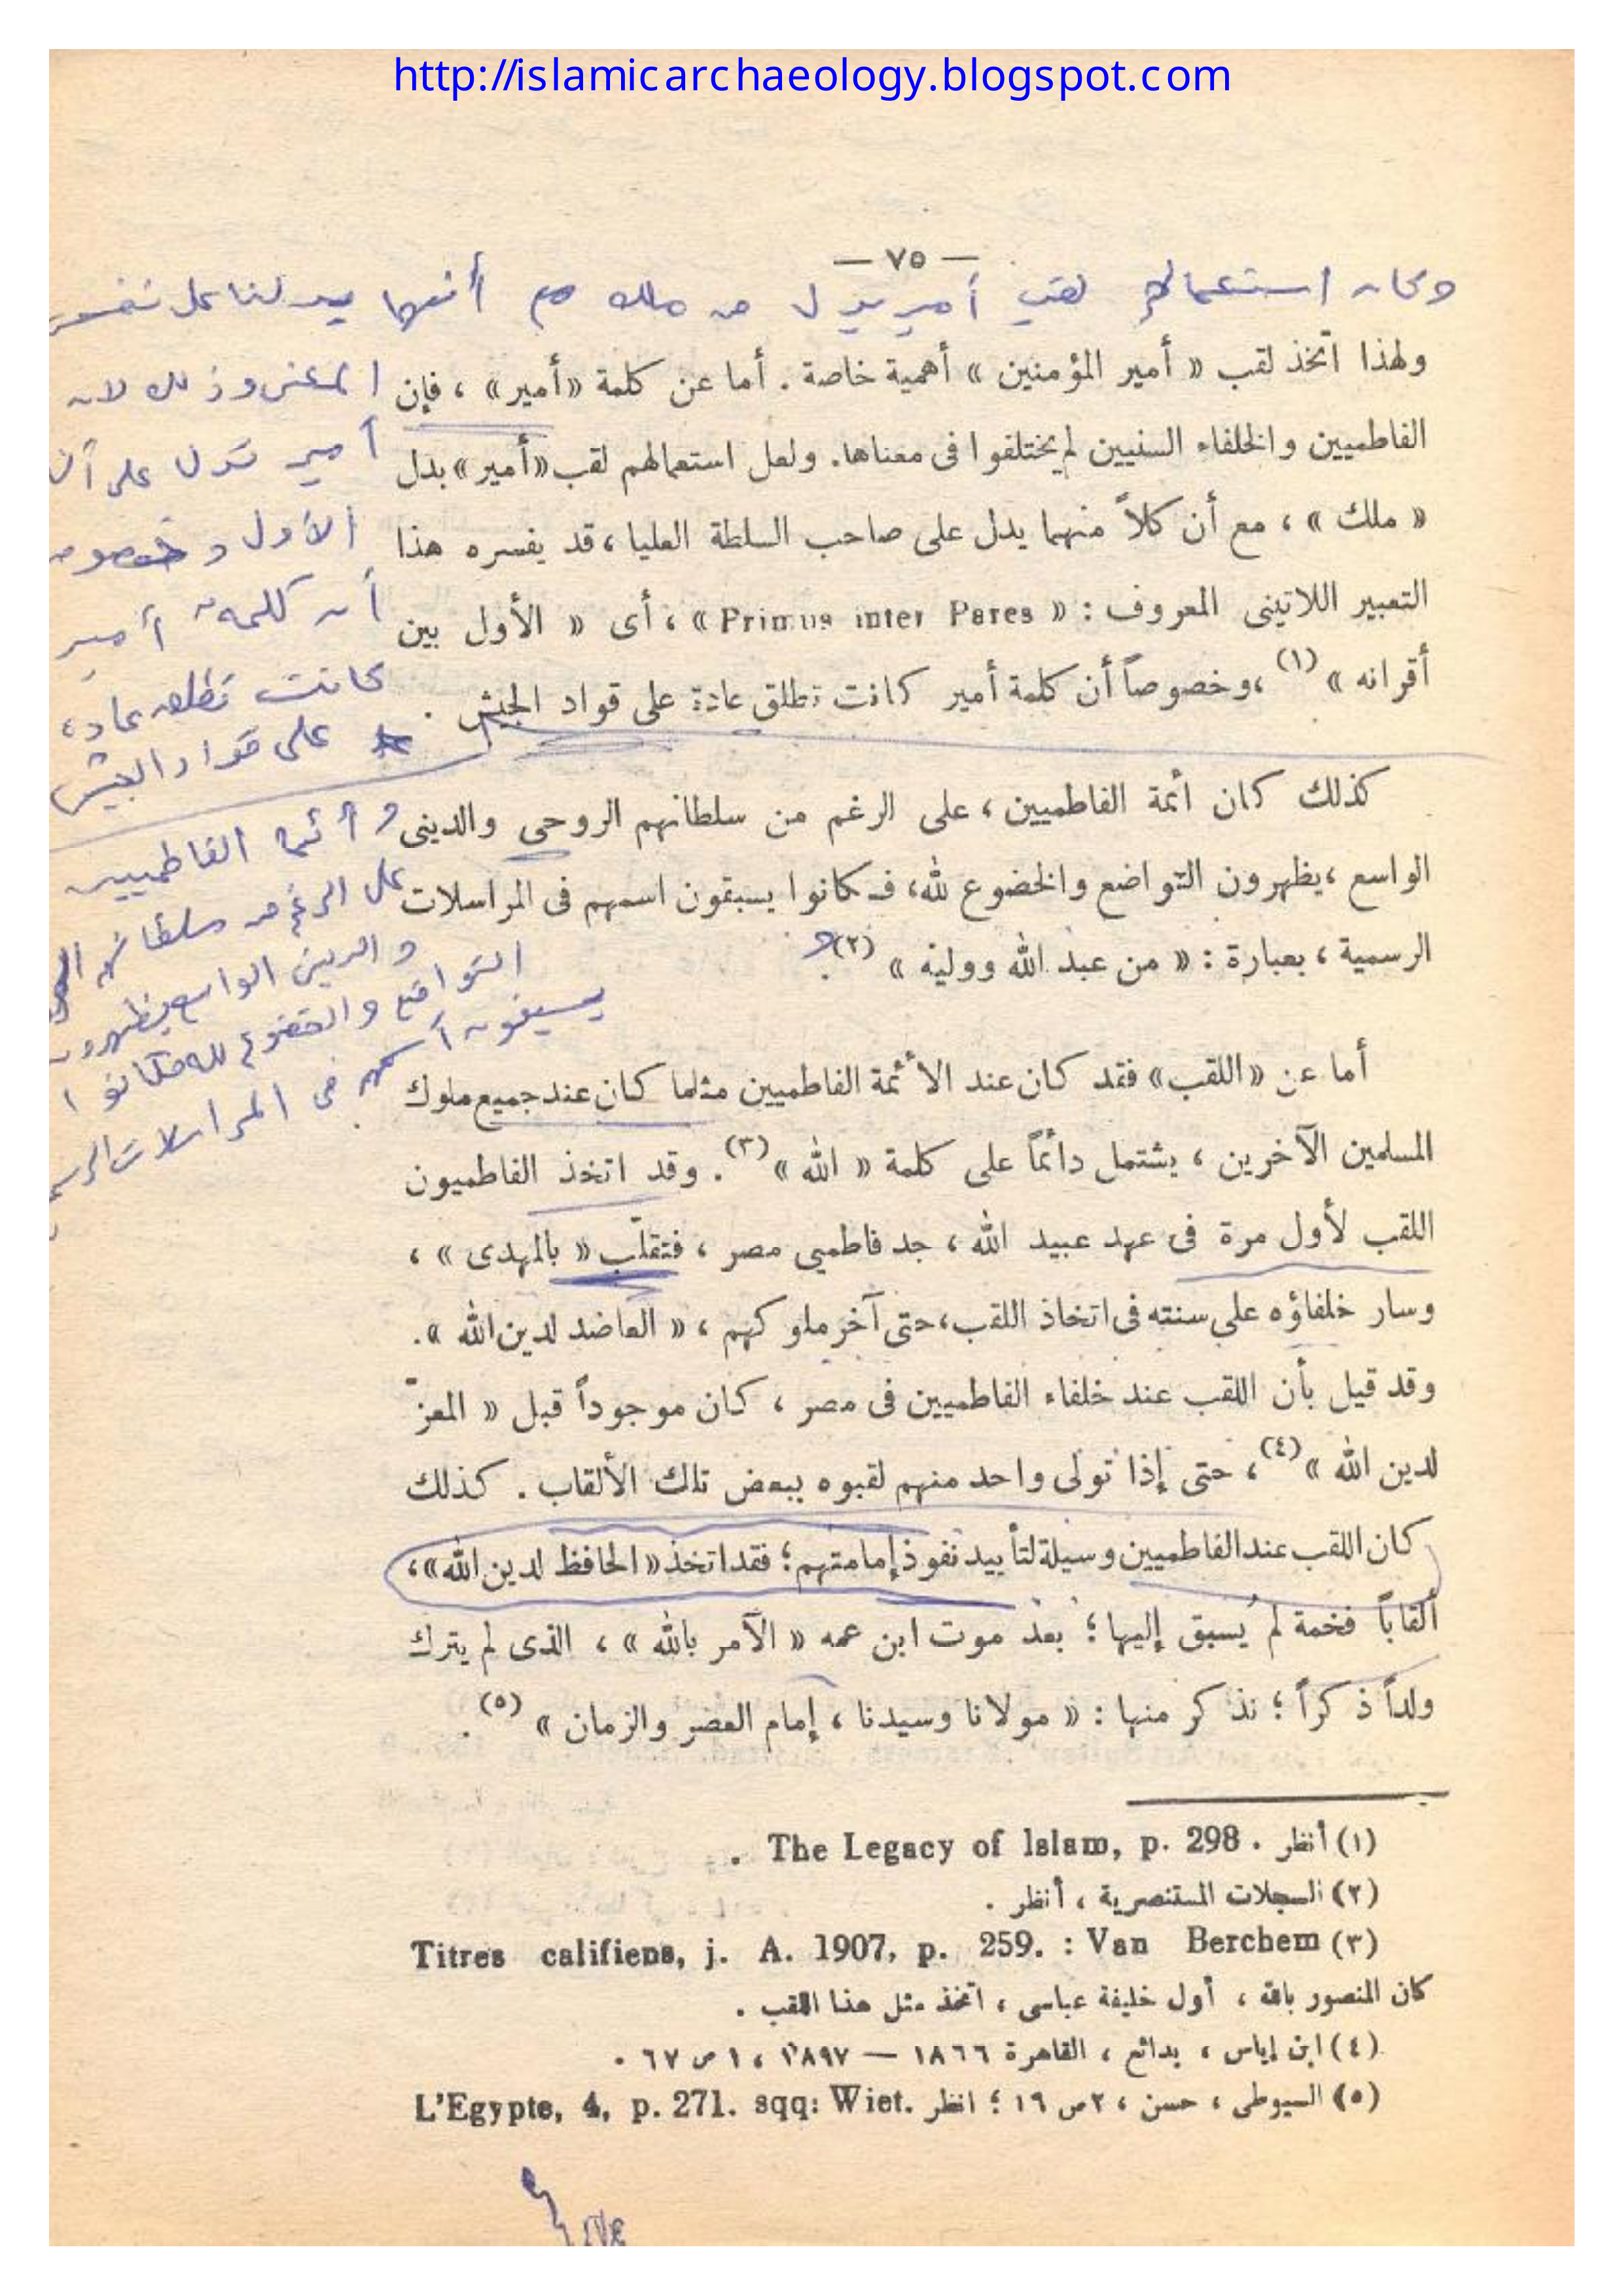 http://islamicarchaeology.blogspot.com
— ٧٥ —
وكان استعمالهم لقب أمير بدل من ملك مع أنهما يدلنا على نفس
ولهذا اتخذ لقب « أمير المؤمنين » أهمية خاصة . أما عن كلمة «أمير» ، فإن
المعنى وذلك لان
الفاطميين والخلفاء السنيين لم يختلفوا فى معناها. ولعل استعمالهم لقب «أمير» بدل
أمير تدل على أن
« ملك » ، مع أن كلاً منهما يدل على صاحب السلطة العليا ، قد يفسره هذا
الأول و
التعبير اللاتينى المعروف : « Primus inter Pares » ، أى « الأول بين
أن كلمة أمير
أقرانه » (١) ، وخصوصاً أن كلمة أمير كانت تطلق عادة على قواد الجيش .
كانت تطلق عادة
على قواد الجيش
كذلك كان أئمة الفاطميين ، على الرغم من سلطانهم الروحى والدينى
و أئمة الفاطميين
الواسع ، يظهرون التواضع والخضوع لله، فكانوا يسبقون اسمهم فى المراسلات
على الرغم من سلطانهم
الرسمية ، بعبارة : « من عبد الله ووليه » (٢).
و الدينى الواسع يظهرون
التواضع والخضوع لله فكانوا
يسبقون اسمهم فى المراسلات
أما عن «اللقب» فقد كان عند الأئمة الفاطميين مثلما كان عند جميع ملوك
المسلمين الآخرين ، يشتمل دائماً على كلمة « الله » (٣). وقد اتخذ الفاطميون
اللقب لأول مرة فى عهد عبيد الله ، جد فاطميى مصر ، فتقلّب « بالمهدى » ،
وسار خلفاؤه على سنته فى اتخاذ اللقب، حتى آخر ملوكهم ، « العاضد لدين الله ».
وقد قيل بأن اللقب عند خلفاء الفاطميين فى مصر ، كان موجوداً قبل « المعزّ
لدين الله » (٤) ، حتى إذا تولى واحد منهم لقبوه ببعض تلك الألقاب . كذلك
كان اللقب عند الفاطميين وسيلة لتأييد نفوذ إمامتهم ؛ فقد اتخذ « الحافظ لدين الله » ،
ألقاباً فخمة لم يُسبق إليها ؛ بعد موت ابن عمه « الآمر بالله » ، الذى لم يترك
ولداً ذكراً ؛ نذكر منها : « مولانا وسيدنا ، إمام العصر والزمان » (٥) .
(١) أنظر . The Legacy of Islam, p. 298 .
(٢) السجلات المستنصرية ، أنظر .
(٣) Titres califiens, j. A. 1907, p. 259. : Van Berchem
كان المنصور بالله ، أول خليفة عباسى ، اتخذ مثل هذا اللقب .
(٤) ابن إياس ، بدائع ، القاهرة ١٨٦٦ — ١٨٩٧ ، ١ ص ٦٧ .
(٥) السيوطى ، حسن ، ٢ ص ١٦ ؛ انظر L'Egypte, 4, p. 271. sqq: Wiet.